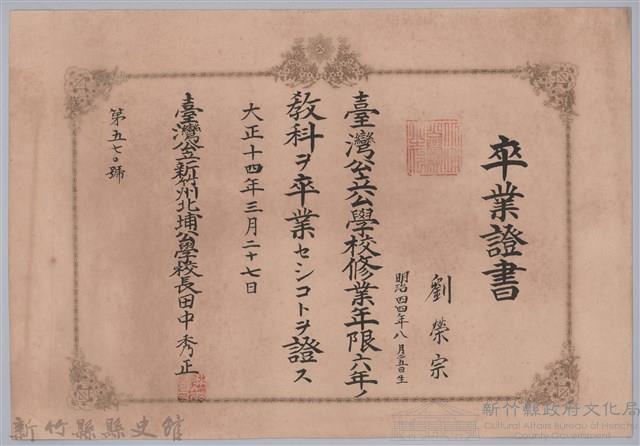 卒業證書
劉榮宗
明治四四年八月二五日生
臺灣公立公學校修業年限六年ノ
敎科ヲ卒業セシコトヲ證ス
大正十四年三月二十七日
臺灣公立新竹州北埔公學校長田中秀正
第五七〇號
新竹縣縣史館
新竹縣政府文化局
Cultural Affairs Bureau of Hsinchu
County Government